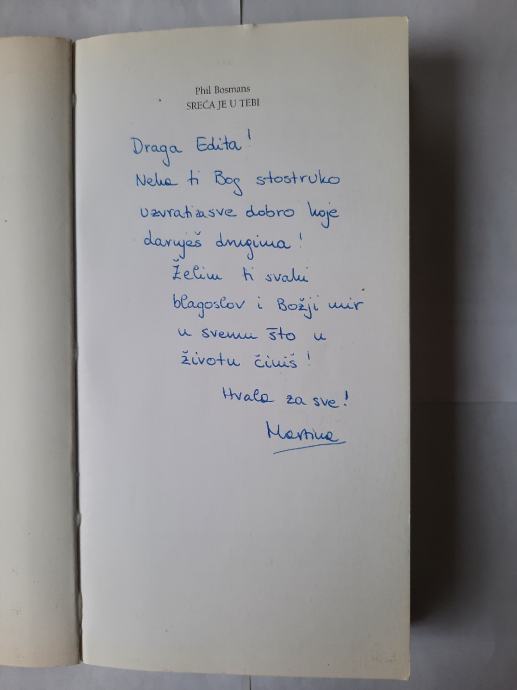 Phil Bosmans
SREĆA JE U TEBI
Draga Edita!
Neka ti Bog stostruko
uzvrati za sve dobro koje
daruješ drugima!
Želim ti svaki
blagoslov i Božji mir
u svemu što u
životu činiš!
Hvala za sve!
Martina